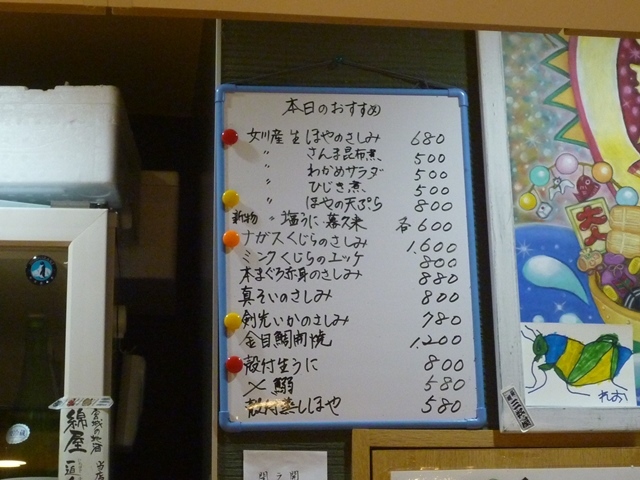 本日のおすすめ
女川産生ほやのさしみ 680
〃 さんま昆布煮 500
〃 わかめサラダ 500
〃 ひじき煮 500
〃 ほやの天ぷら 800
新物 〃 塩うに 莫久来 各600
ナガスくじらのさしみ 1,600
ミンククじらのユッケ 800
本まぐろ赤身のさしみ 880
真そいのさしみ 800
剣先いかのさしみ 780
金目鯛 1,200
殻付生うに 800
〆鰯 580
殻付蒸しほや 580
綿屋
大人
れお